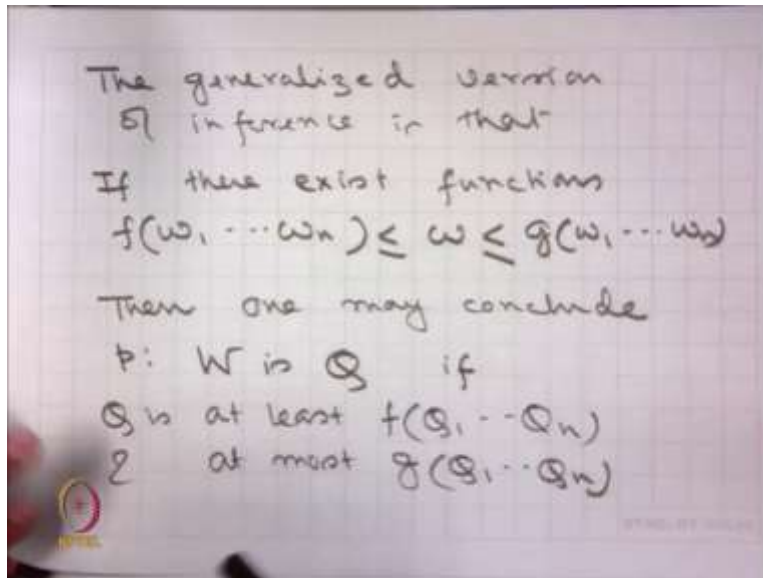 The generalized version
of inference is that
If there exist functions
f(ω₁ ... ωₙ) ≤ ω ≤ g(ω₁ ... ωₙ)
Then one may conclude
p: W is Q if
Q is at least f(Q₁ .. Qₙ)
& at most g(Q₁ .. Qₙ)
NPTEL